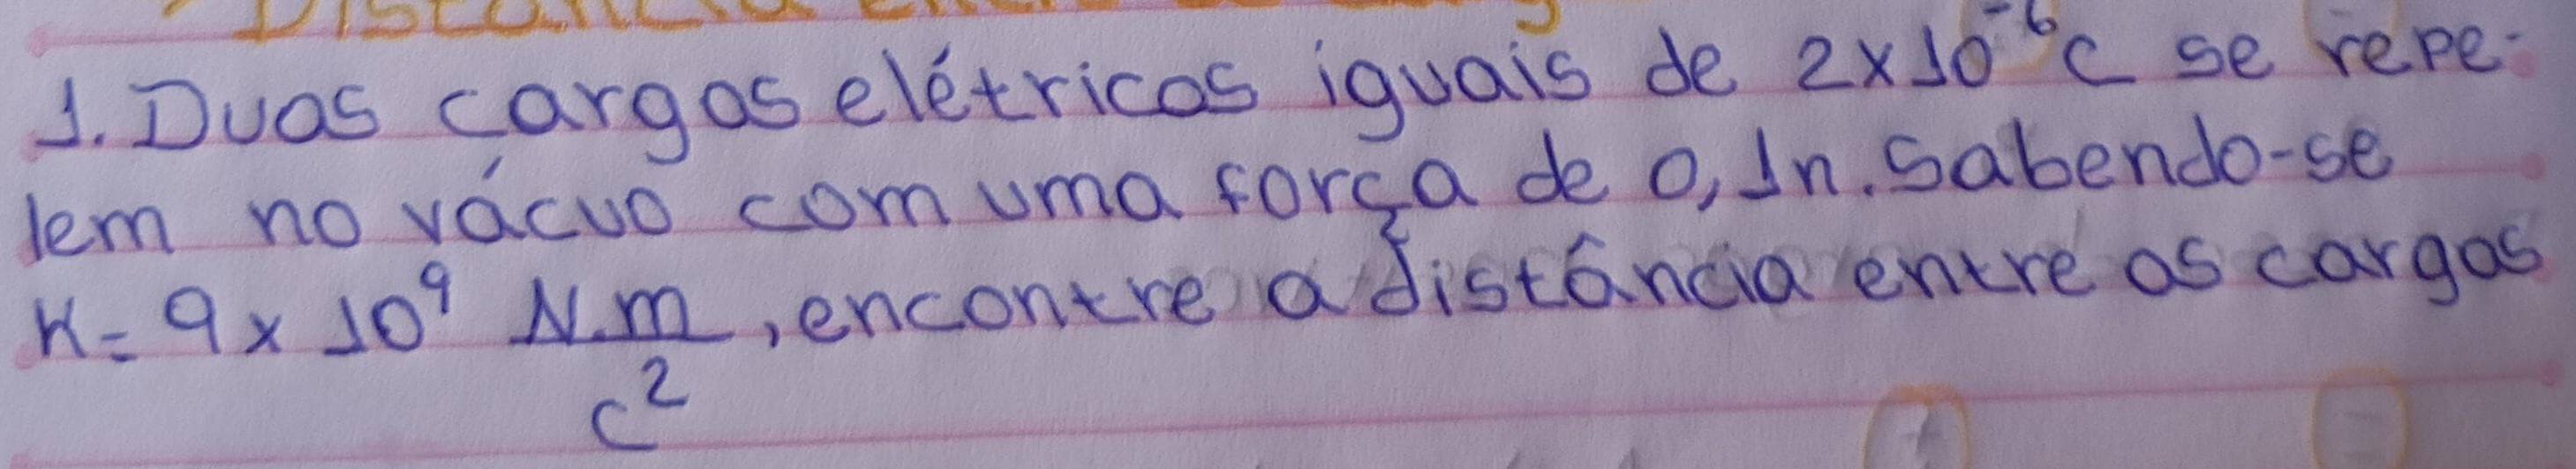 Distância entre
1. Duas cargas elétricas iguais de 2x10⁻⁶C se repe-
lem no vácuo com uma força de 0,1n. Sabendo-se
K= 9x10⁹ N.m/c², encontre a distância entre as cargas
+ -